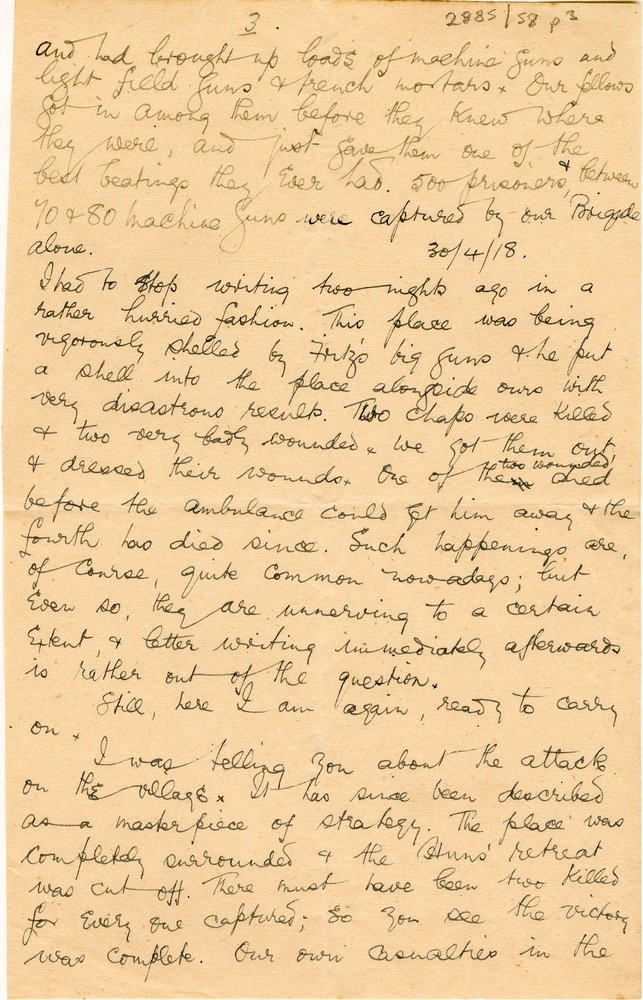 3.
2885/58 p3
and had brought up loads of machine guns and
light field guns & trench mortars. Our fellows
got in among them before they knew where
they were, and just gave them one of the
best beatings they ever had. 500 prisoners, & between
70 & 80 machine guns were captured by our Brigade
alone. 30/4/18.
I had to stop writing two nights ago in a
rather hurried fashion. This place was being
vigorously shelled by Fritz's big guns & he put
a shell into the place alongside ours with
very disastrous results. Two chaps were killed
& two very badly wounded. We got them out,
& dressed their wounds. One of the two wounded died
before the ambulance could get him away & the
fourth has died since. Such happenings are,
of course, quite common nowadays; but
even so, they are unnerving to a certain
extent, & letter writing immediately afterwards
is rather out of the question.
Still, here I am again, ready to carry
on.
I was telling you about the attack
on the village. It has since been described
as a masterpiece of strategy. The place was
completely surrounded & the Huns' retreat
was cut off. There must have been two killed
for every one captured; so you see the victory
was complete. Our own casualties in the